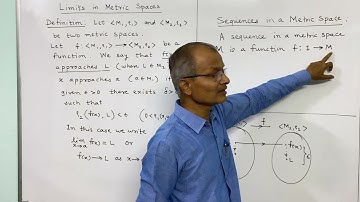 Limits in Metric Spaces
Definition. Let <M₁,t₁> and <M₂,t₂>
be two metric spaces.
Let f: <M₁,t₁> → <M₂,t₂> be a
function. We say that
approaches L (where L ∈ M₂)
x approaches a (a ∈ M₁)
given ε > 0 there exists δ>
such that
t₂(f(x), L) < ε (0<t₁(x,
In this case we write
lim f(x) = L or
x→a
f(x) → L as x→
Sequences in a Metric Space.
A sequence in a metric space
M is a function f: I → M
f
<M₂,t₂>
f(x)
L
ε